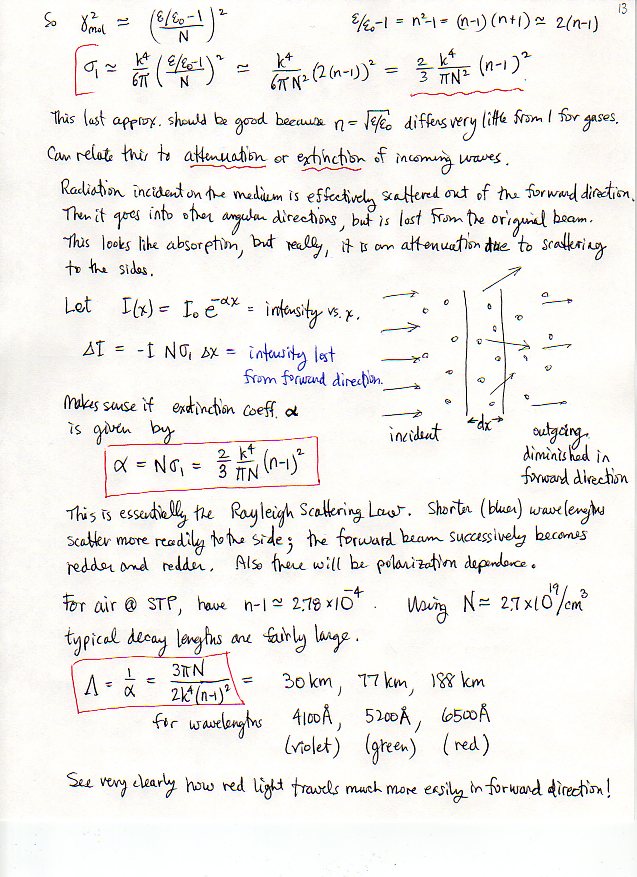 13
So γ²mol ≃ ((ε/ε₀-1)/N)²     ε/ε₀-1 = n²-1 = (n-1)(n+1) ≃ 2(n-1)
σ₁ ≃ k⁴/6π ((ε/ε₀-1)/N)² ≃ k⁴/6πN² (2(n-1))² = 2/3 k⁴/πN² (n-1)²
This last approx. should be good because n = √ε/ε₀ differs very little from 1 for gases.
Can relate this to attenuation or extinction of incoming waves.
Radiation incident on the medium is effectively scattered out of the forward direction.
Then it goes into other angular directions, but is lost from the original beam.
This looks like absorption, but really, it is an attenuation due to scattering
to the sides.
Let I(x) = I₀ e^-αx = intensity vs. x.
ΔI = -I Nσ₁ Δx = intensity lost
from forward direction.
Makes sense if extinction coeff. α
is given by
α = Nσ₁ = 2/3 k⁴/πN (n-1)²
incident
dx
outgoing,
diminished in
forward direction
This is essentially the Rayleigh Scattering Law. Shorter (bluer) wavelengths
scatter more readily to the side; the forward beam successively becomes
redder and redder. Also there will be polarization dependence.
For air @ STP, have n-1 ≃ 2.78×10⁻⁴. Using N = 2.7×10¹⁹/cm³
typical decay lengths are fairly large.
Λ = 1/α = 3πN/2k⁴(n-1)² = 30 km, 77 km, 188 km
for wavelengths 4100Å, 5200Å, 6500Å
(violet) (green) (red)
See very clearly how red light travels much more easily in forward direction!